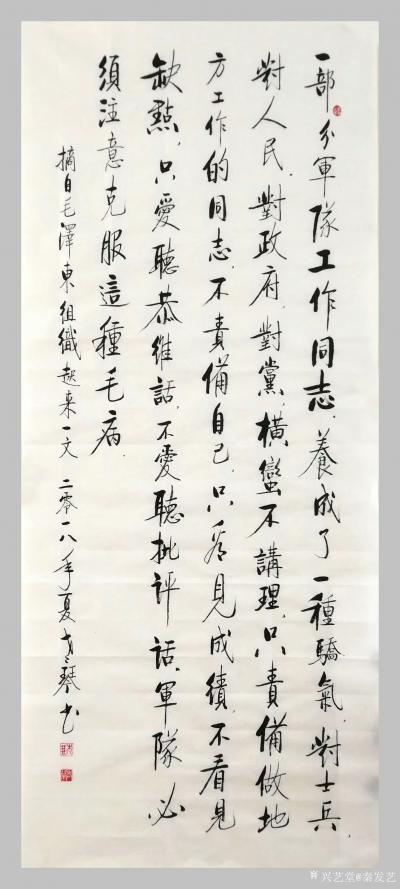 一部分軍隊工作同志，養成了一種驕氣，對士兵，
對人民，對政府，對黨，橫蠻不講理，只責備做地
方工作的同志，不責備自己，只看見成績，不看見
缺點，只愛聽恭維話，不愛聽批評話，軍隊必
須注意克服這種毛病。
摘自毛澤東組織起來一文 二零一八年夏 琴书
兴艺堂@秦发艺